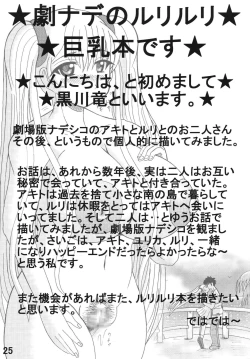 ★劇ナデのルリルリ★
★巨乳本です★
★こんにちは、と初めまして★
★黒川竜といいます。★
劇場版ナデシコのアキトとルリとのお二人さん
その後、というもので個人的に描いてみました。
お話は、あれから数年後、実は二人はお互い
秘密で会っていて、アキトと付き合っていた。
アキトは過去を捨て小さな南の島で暮らして
いて、ルリは休暇をとってはアキトへ会いに
いってました。そして二人は‥とゆうお話で
描いてみましたが、劇場版ナデシコを観まし
たが、さいごは、アキト、ユリカ、ルリ、一緒
になりハッピーエンドだったらよかったらな~
と思う私です。
また機会があれば、また、ルリルリ本を描きたい
と思います。
ではでは~
25